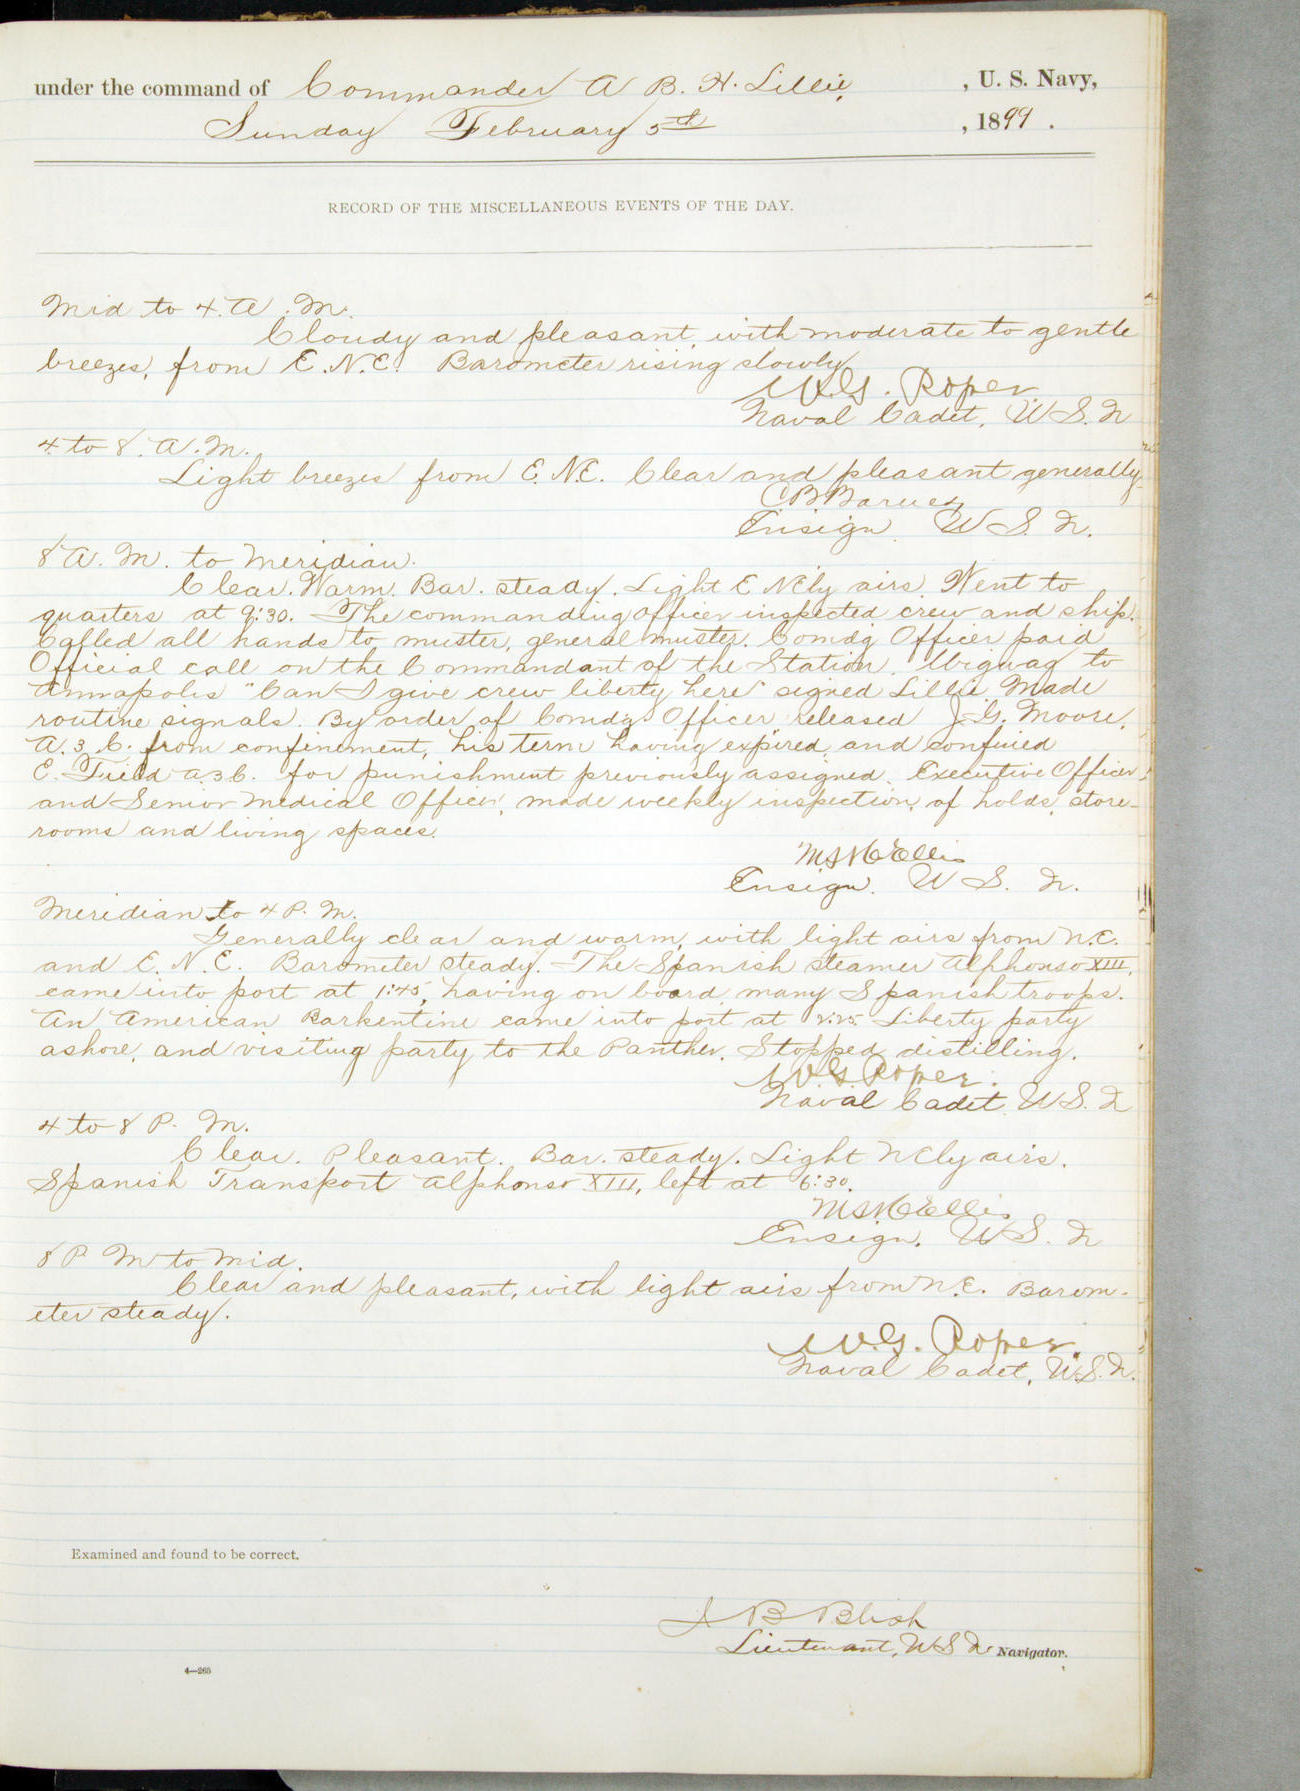 under the command of Commander A. B. H. Lillie, , U. S. Navy,
Sunday February 5th , 1899 .
RECORD OF THE MISCELLANEOUS EVENTS OF THE DAY.
Mid to 4. A. M.
Cloudy and pleasant, with moderate to gentle
breezes, from E.N.E. Barometer rising slowly
W.G. Roper
Naval Cadet, U.S.N
4 to 8. A.M.
Light breezes from E.N.E. Clear and pleasant generally.
C B Barnes
Ensign U.S.N.
8 A. M. to Meridian.
Clear. Warm. Bar. steady. Light E NE'ly airs. Went to
quarters at 9:30. The commanding Officer inspected crew and ship.
Called all hands to muster, general muster. Comdg Officer paid
Official call on the Commandant of the Station. Wigwag to
Annapolis "Can I give crew liberty here" signed Lillie Made
routine signals. By order of Comdg Officer released J.G. Moore,
A.3.C. from confinement, his term having expired, and confined
E. Field a.3C. for punishment previously assigned. Executive Officer
and Senior Medical Officer, made weekly inspection, of holds, store-
rooms and living spaces.
Ellis
Ensign. U S. N.
Meridian to 4 P. M.
Generally clear and warm, with light airs from N.E.
and E. N. E. Barometer steady. The Spanish steamer Alphonso XIII,
came into port at 1:45, having on board many Spanish troops.
An American Barkentine came into port at 2:25. Liberty party
ashore, and visiting party to the Panther. Stopped distilling.
W.G. Roper.
Naval Cadet U.S.N
4 to 8 P. M.
Clear. Pleasant. Bar. steady. Light NEly airs.
Spanish Transport Alphonso XIII, left at 6:30.
Ellis
Ensign, U.S.N
8 P M to Mid.
Clear and pleasant, with light airs from N.E. Barom-
eter steady.
W.G. Roper.
Naval Cadet, U.S.N.
Examined and found to be correct.
J B Blish
Lieutenant, U S N Navigator.
4—265